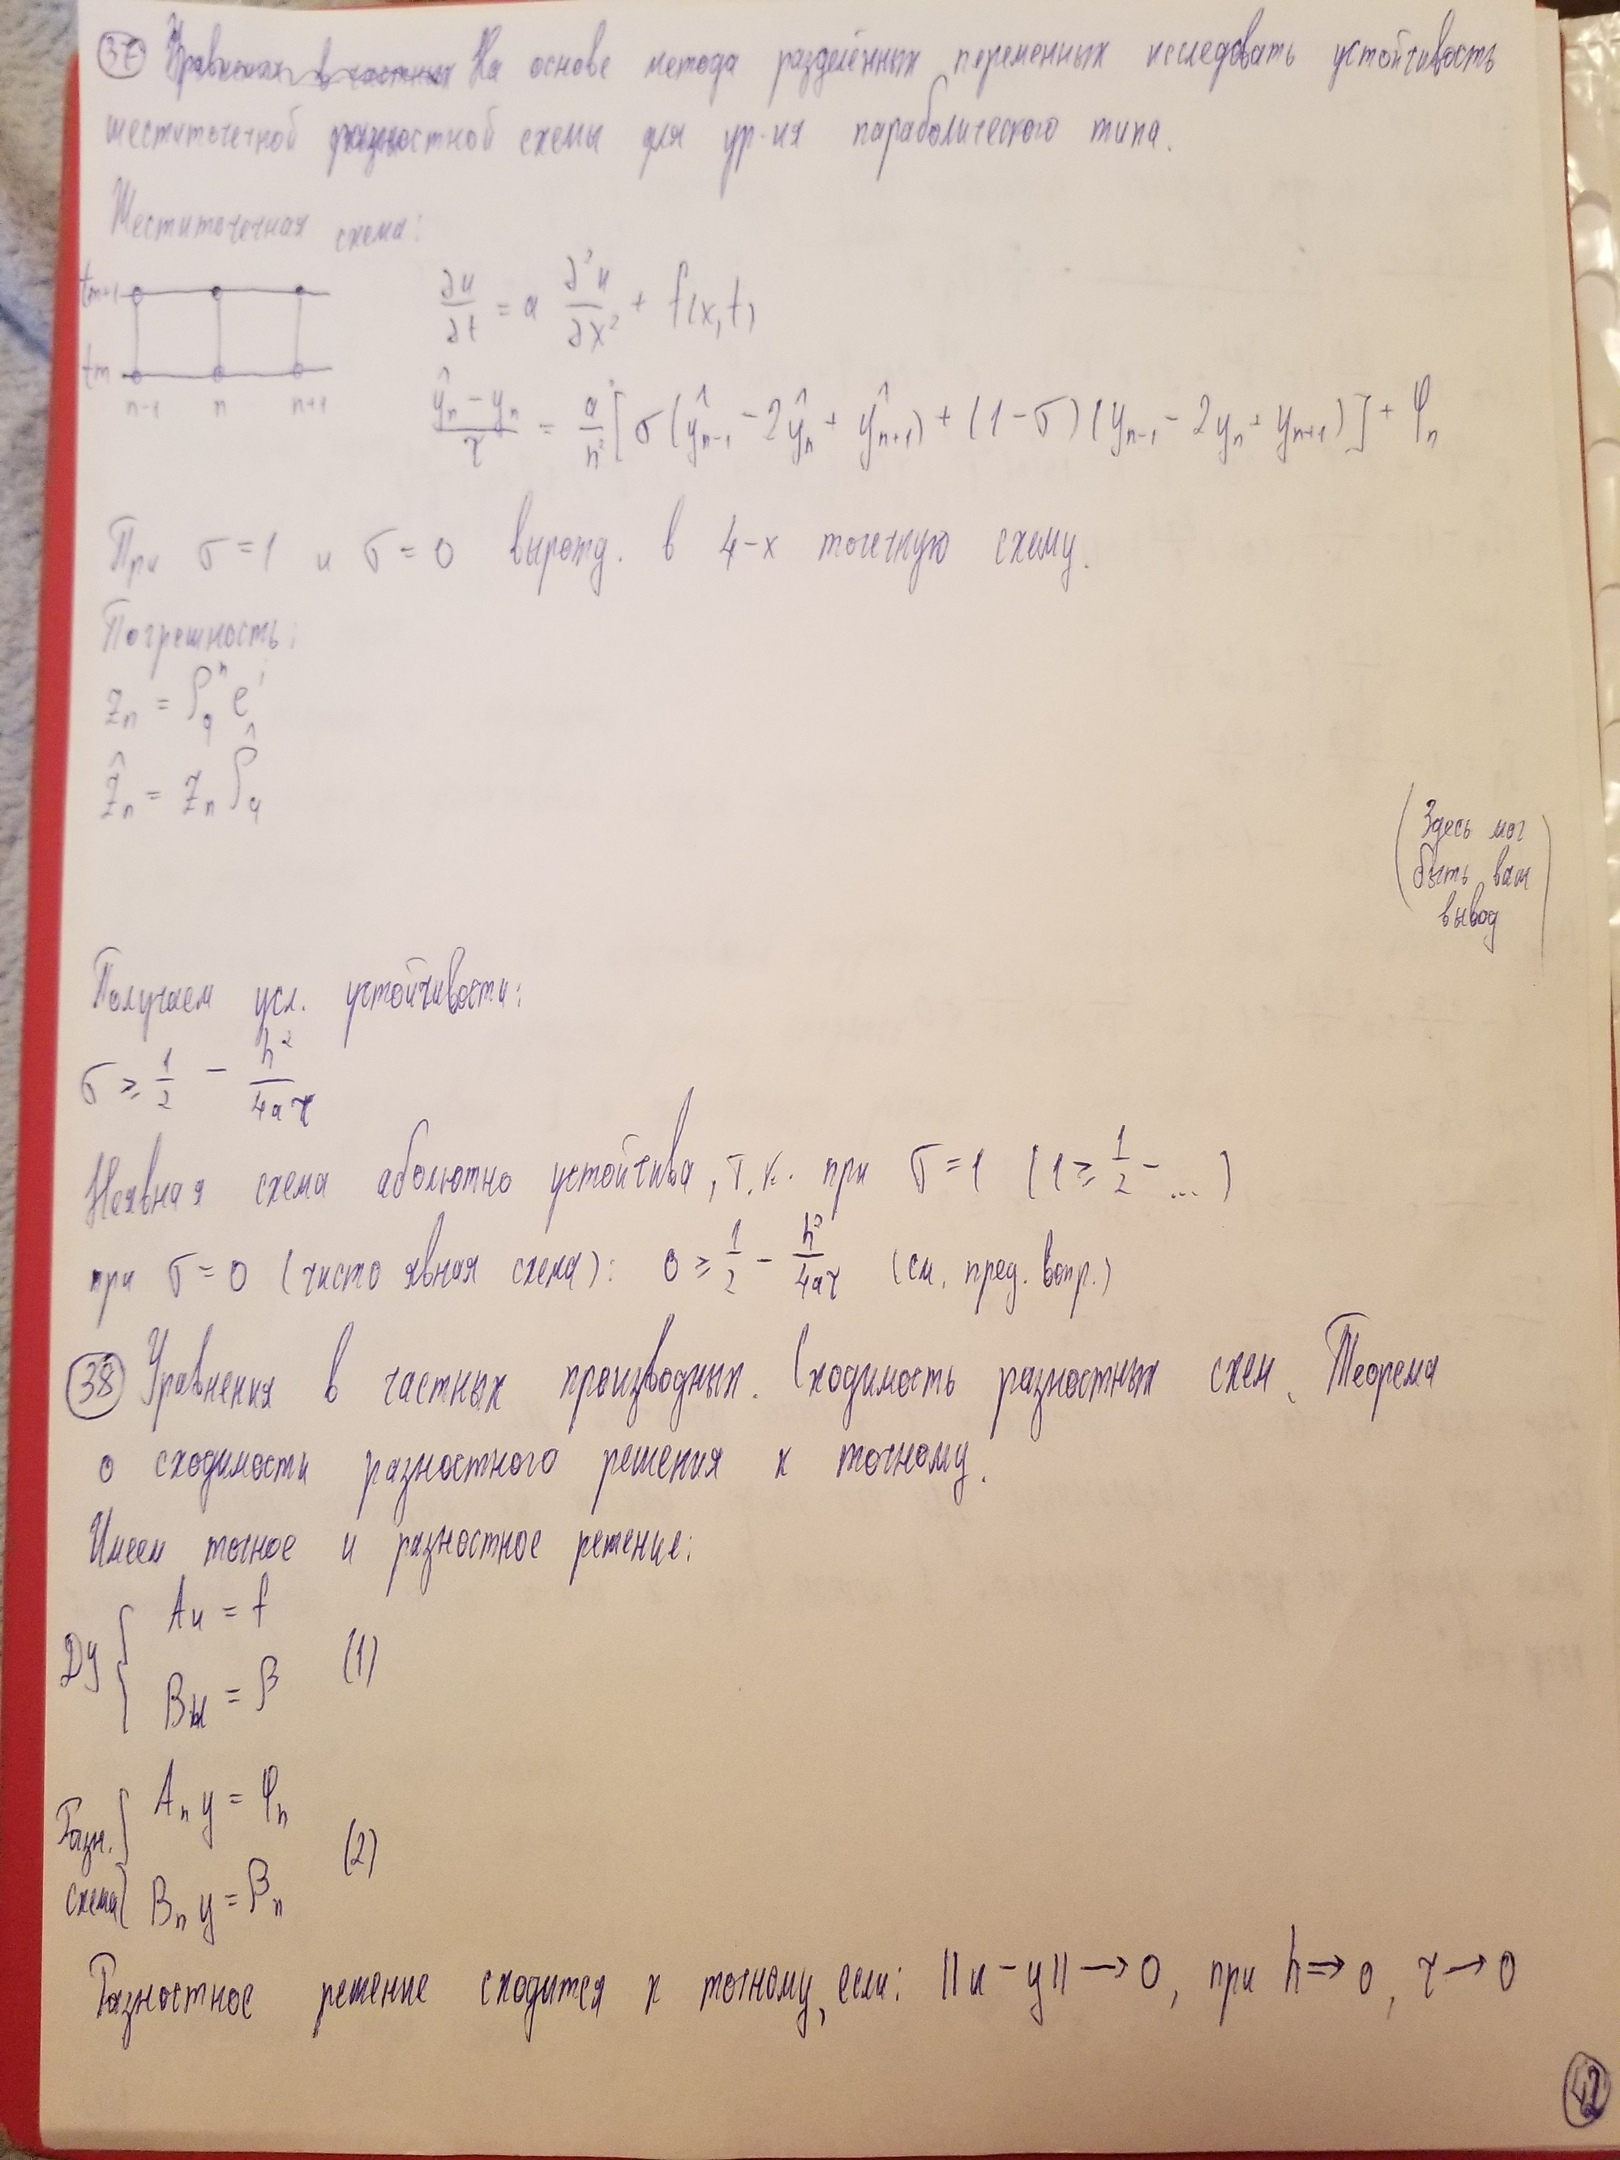 37 Уравнения в частных На основе метода разделённых переменных исследовать устойчивость
шеститочечной разностной схемы для ур-ия параболического типа.
Шеститочечная схема:
t_{m+1}
t_m
n-1 n n+1
∂u/∂t = a ∂²u/∂x² + f(x,t)
(ŷ_n - y_n)/τ = a/h² [σ(ŷ_{n-1} - 2ŷ_n + ŷ_{n+1}) + (1-σ)(y_{n-1} - 2y_n + y_{n+1})] + φ_n
При σ=1 и σ=0 вырожд. в 4-х точечную схему.
Погрешность:
z_n = ρ_q^n e^i
ẑ_n = z_n ρ̂_q
(Здесь мог
быть ваш
вывод)
Получаем усл. устойчивости:
σ ≥ 1/2 - h²/4aτ
Неявная схема аболютно устойчива, т.к. при σ=1 (1 ≥ 1/2 - ...)
при σ=0 (чисто явная схема): 0 ≥ 1/2 - h²/4aτ (см. пред. вопр.)
38 Уравнения в частных производных. Сходимость разностных схем. Теорема
о сходимости разностного решения к точному.
Имеем точное и разностное решение:
ДУ { Au = f
Bu = β (1)
Разн. схема { A_n y = φ_n
B_n y = β_n (2)
Разностное решение сходится к точному, если: ||u - y|| → 0, при h → 0, τ → 0
42